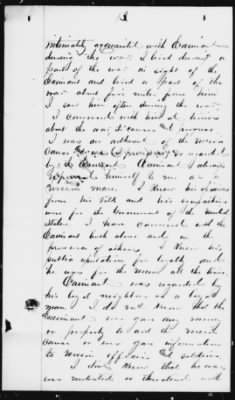 intimately acquainted with Claimant
during the war. I lived during a
part of the war in sight of the
Claimant and lived a part of the
war about five miles from him
I saw him often during the war,
I conversed with him at times
about the war, its causes and progress
I was an adherent of the Union
cause and was so regarded
by the Claimant. Claimant always
himself to me as a
Union man. I knew his
from his talk and his
were for the Government of the United
States I have conversed with the
Claimant both alone and in the
presence of others. I knew his
public reputation for loyalty and
he was for the Union all the time.
Claimant was regarded by
his loyal neighbors as a loyal
man. I do not know that the
Claimant ever gave any money
or property to aid the Union
cause or ever gave information
to Union officers and soldiers.
I don't know that he was
ever molested or threatened with